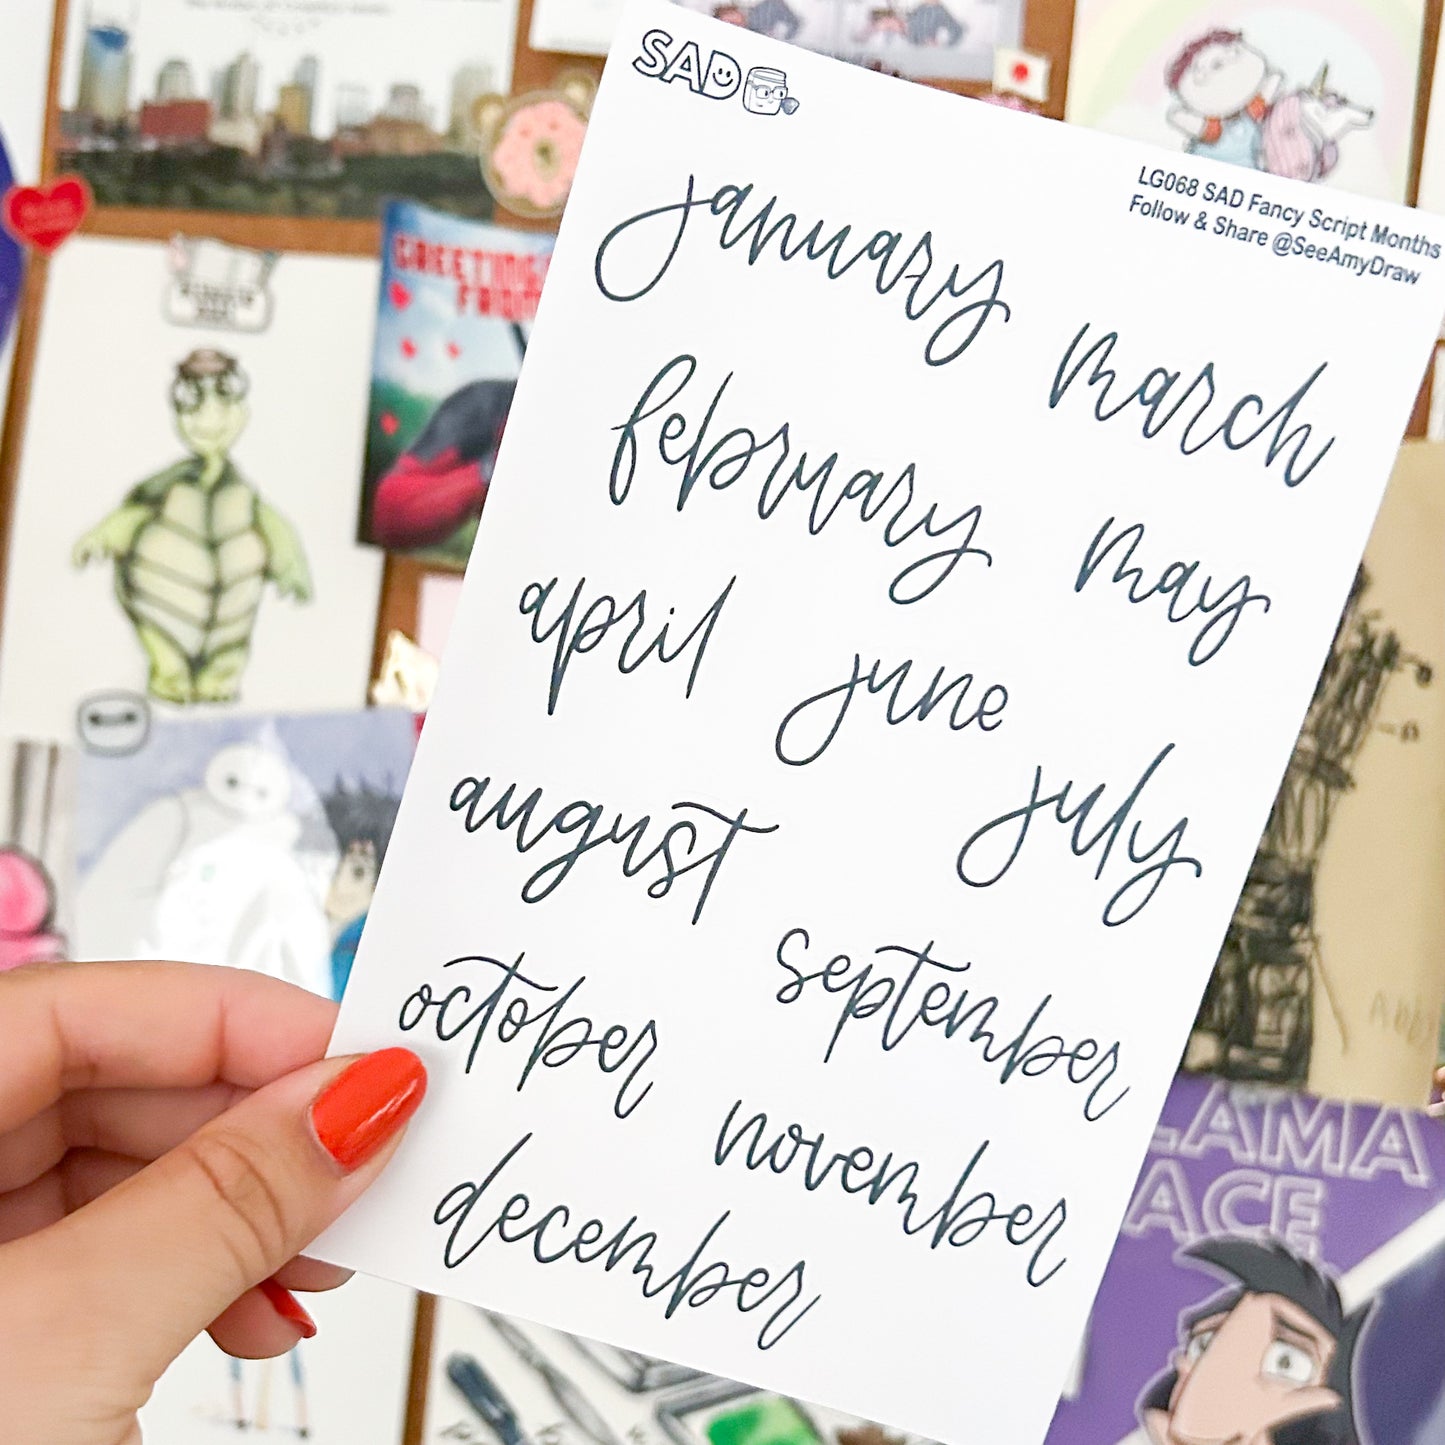 SAD
LG068 SAD Fancy Script Months
Follow & Share @SeeAmyDraw
january
march
february
may
april
june
july
august
september
october
november
december
GREETINGS
FROM
LAMA
ACE